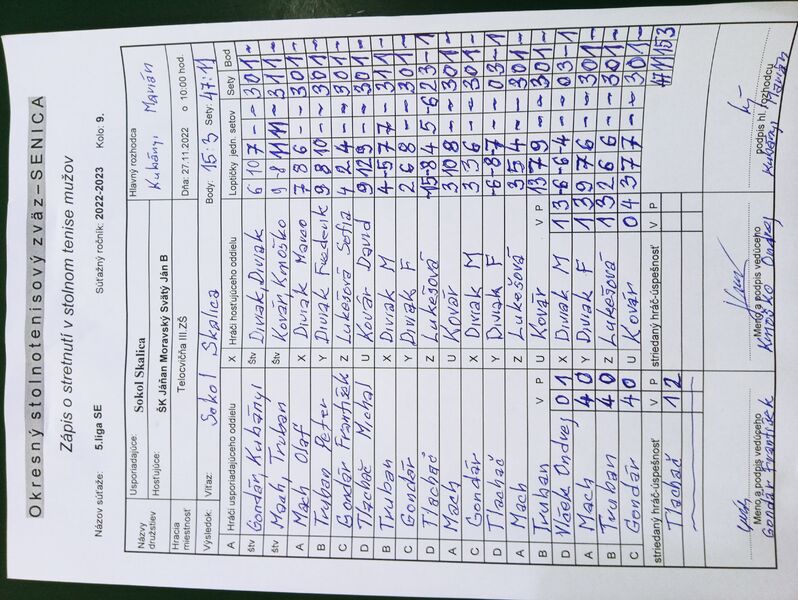 Okresný stolnotenisový zväz–SENICA
Zápis o stretnutí v stolnom tenise mužov
Názov súťaže: 5.liga SE Súťažný ročník: 2022-2023 Kolo: 9.
Názvy družstiev Usporiadajúce: Sokol Skalica Hlavný rozhodca
Hosťujúce: ŠK Jáňan Moravský Svätý Ján B Kubányi Marián
Hracia miestnosť Telocvičňa III.ZŠ Dňa: 27.11.2022 o 10:00 hod.
Výsledok: Víťaz: Sokol Skalica Body: 15:3 Sety: 47:11
A Hráči usporiadajúceho oddielu X Hráči hosťujúceho oddielu Loptičky jedn. setov Sety Bod
štv Gondár, Kubányi štv Diviak, Diviak 6 10 7 - - 3 0 1 -
štv Mach, Truban štv Kovár, Kmoško 9 -8 11 11 - 3 1 1 -
A Mach Olaf X Diviak Marco 7 8 6 - - 3 0 1 -
B Truban Peter Y Diviak Frederik 9 8 10 - - 3 0 1 -
C Gondár František Z Lukešová Sofia 4 2 4 - - 3 0 1 -
D Tlachač Michal U Kovár David 9 12 9 - - 3 0 1 -
B Truban X Diviak M 4 -5 7 7 - 3 1 1 -
C Gondár Y Diviak F 2 6 8 - - 3 0 1 -
D Tlachač Z Lukešová -15 -8 4 5 -6 2 3 - 1
A Mach U Kovár 3 10 8 - - 3 0 1 -
C Gondár X Diviak M 3 3 6 - - 3 0 1 -
D Tlachač Y Diviak F -6 -8 -7 - - 0 3 - 1
A Mach Z Lukešová 3 5 4 - - 3 0 1 -
B Truban V P U Kovár V P 13 7 9 - - 3 0 1 -
D Vašek Ondrej 0 1 X Diviak M 1 3 -6 -6 -4 - - 0 3 - 1
A Mach 4 0 Y Diviak F 1 3 9 7 6 - - 3 0 1 -
B Truban 4 0 Z Lukešová 1 3 2 6 6 - - 3 0 1 -
C Gondár 4 0 U Kovár 0 4 3 7 7 - - 3 0 1 -
striedaný hráč-úspešnosť V P striedaný hráč-úspešnosť V P 47 11 15 3
Tlachač 1 2
Meno a podpis vedúceho Meno a podpis vedúceho podpis hl. rozhodcu
Gondár František Kmoško Ondrej Kubányi Marián